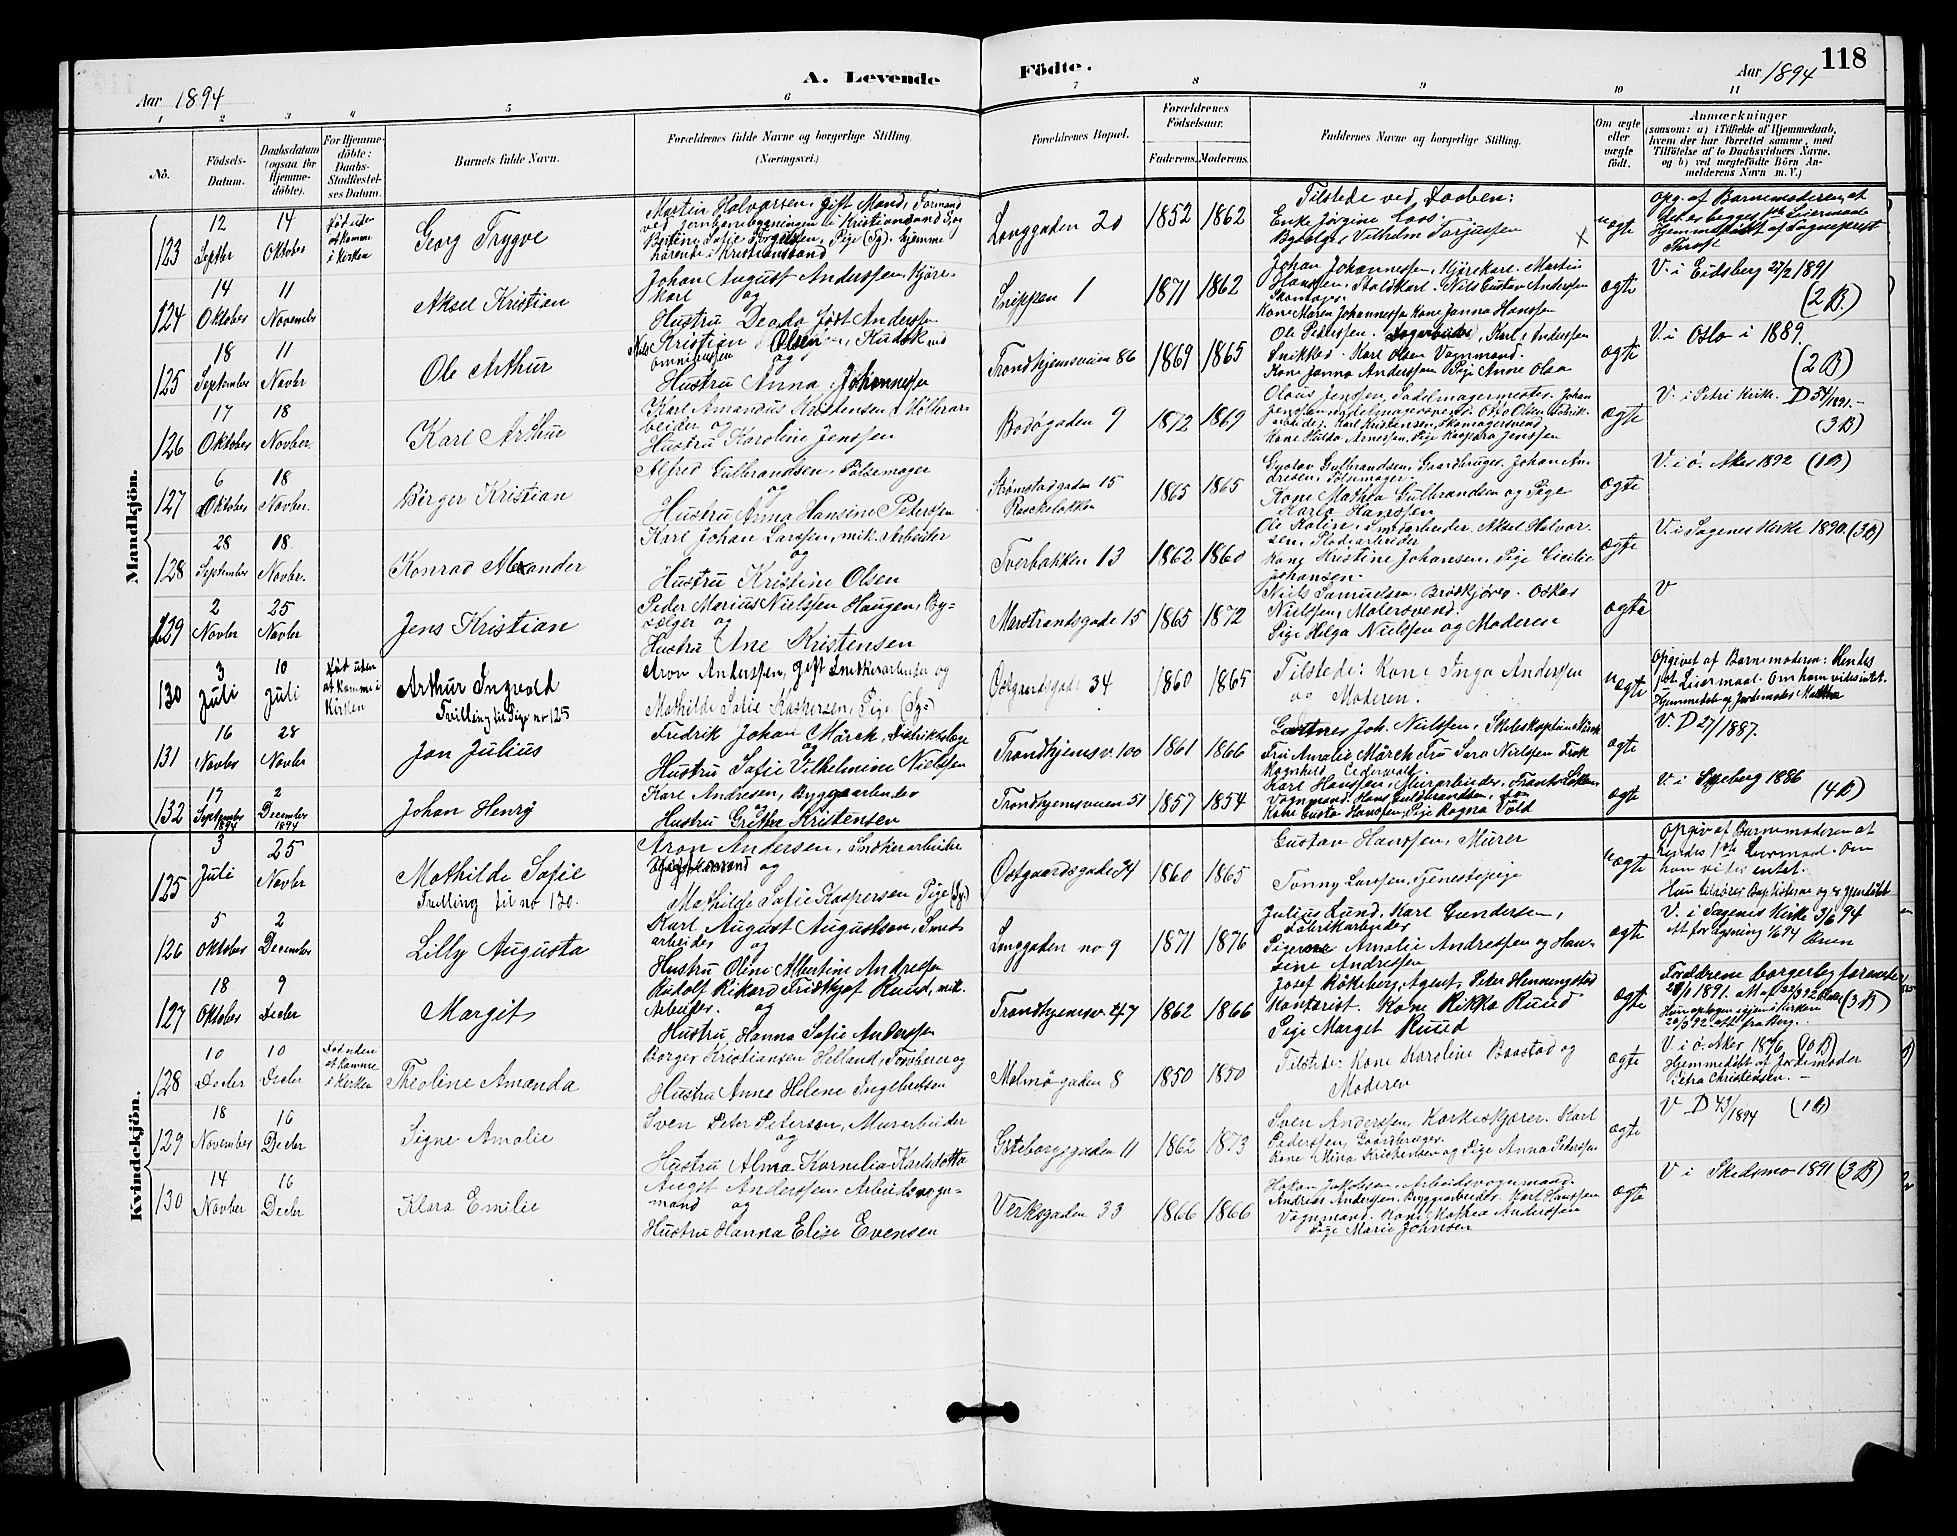 A. Levende
Fødte.
118
Aar 1894
Aar 1894
1 2 3 4 5 6 7 8 9 10 11
No.
Födsels-Datum.
Daabsdatum (ogsaa for Hjemme-döbte).
For Hjemme-döbte: Daabs-Stadfæstel-ses Datum.
Barnets fulde Navn.
Forældrenes fulde Navne og borgerlige Stilling. (Næringsvei.)
Forældrenes Bopæl.
Forældrenes Födselsaar.
Faderens. Moderens.
Faddernes Navne og borgerlige Stilling.
Om ægte eller uægte født.
Anmærkninger
(saasom: a) i Tilfælde af Hjemmedaab, hvem der har forrettet samme, med Tilföielse af to Daabsvidners Navne, og b) ved uægtefödte Börn An-melderens Navn m. V.)
Mandkjön.
123 12 Septbr 14 Oktober Død uden at komme i Kirken Georg Trygve
Martin Halvorsen, gift Mand, Formand
ved Jernbanebygningen i Kristianssand, og
Bertine Sofie Pige (Sy). hjemme
hørende i Kristianssand
Langgaden 20 1852 1862
Tilstede ved Daaben:
Enke Jørgine Loos.
Bysælger Vilhelm Torjussen
uægte
Opg. af Barnemoderen, at
det er begges 1ste Leiermaal
124 14 Oktober 11 November Aksel Kristian
Johan August Anderssen, Kjøre-
karl og
Hustru Deoda født Anderssen
Snippen 1 1871 1862
Johan Johannessen, Kjørekarl. Martin
Hanssen, Staldkarl. Nils Gustav Anderssen
Skomager.
Kone Maren Johannessen Kone Janna Hanssen
ægte
V. i Eidsberg 27/2 1891
(2 B.)
125 18 September 11 Novbr Ole Arthur
Nils Kristian Olsen, Kudsk ved
omnibussen og
Hustru Anna Johannessen
Trondhjemsveien 86 1869 1865
Ole Pedersen. Karl Anderssen
Snikker. Karl Olsen Vognmand.
Kone Janna Anderssen Pige Anne Olsen
ægte
V. i Oslo i 1889.
(2 B)
126 17 Oktober 18 Novber. Karl Arthur
Karl Amandus Kristensen, Møllerar-
beider og
Hustru Karoline Jenssen
Bodøgaden 9 1872 1869
Olaus Jenssen, Sadelmagermester. Johan
Jenssen sadelmagersvend. Otto Olsen Fabrik-
arbeider. Karl Kristensen, Skomagersvend
Kone Hulda Arnessen, Pige Kaspara Jenssen
ægte
V. i Petri Kirke.
(3 B)
127 6 Oktober 18 Novber. Birger Kristian
Alfred Gulbrandsen, Pølsemager
og
Hustru Anna Hansine Peterssen
Strømstadgaden 15
Rosckeløkken
1865 1865
Gustav Gulbrandsen, Gaardbruger. Johan An-
dresen, Pølsemager.
Kone Mathea Gulbrandsen og Pige
Karla Hanssen
ægte
V. i ö. Aker 1892 (1 B)
128 28 September 18 Novbr. Konrad Alexander
Karl Johan Larssen, mek. Arbeider
og
Hustru Kristine Olsen
Tverbakken 13 1862 1860
Ole Kolin, Aksel Halvor-
sen,
Kone Kristine Johansen, Pige Cicilie
Johansen.
ægte
V. i Sagenes Kirke 1890. (3 B)
129 2 Novbr 25 Novbr Jens Kristian
Peder Marius Nielssen Haugen, By-
sælger og
Hustru Ane Kristensen
Marstrandsgade 15 1865 1872
Niels Samuelsen, Brødkjører. Oskar
Nielssen, Malersvend.
Pige Helga Nielssen og Moderen
ægte
V
130 3 Juli 10 Juli Død uden at komme i Kirken Arthur Ingvald
Tvilling til Pige no 125
Aron Anderssen, gift Snekkerarbeider og
Mathilde Sofie Kaspersen, Pige (Sy.)
Østgaardsgade 34 1860 1865
Tilstede: Kone Inga Anderssen
og Moderen.
uægte
Opgivet af Barnemoderen: Hendes
1ste Leiermaal. Om ham vides intet.
131 16 Novbr 28 Novbr Jon Julius
Fredrik Johan Mårck, Distriktslæge
og
Hustru Sofie Vilhelmine Nielssen
Trondhjemsv. 100 1861 1866
Gartner Joh. Nielssen, Skibskaptein Mårck
Fru Amalie Mårck Fru Sara Nielssen Frøk
Ragnhild Cedervald
ægte
V. D 27/1887.
132 17 September 1894 2 December 1894 Johan Henry
Karl Andresen, Byggearbeider
og
Hustru Grethe Kristensen
Trondhjemsveien 51 1857 1854
Karl Hanssen, Murarbeider, Frants Løken
Vognmand. Hans Guldbrandsen,
Kone Gusta Hanssen, Pige Ragna Vold
ægte
V. i Speberg 1886
(4 B)
Kvindekjön.
125 3 Juli 25 Novbr Mathilde Sofie
Tvilling til no 130.
Aron Andersen, Snekkerarbeider
og
Mathilde Sofie Kaspersen Pige (Sy.)
Østgaardsgade 34 1860 1865
Gustav Hanssen, Murer
Tonny Larssen, Tjenestepige
uægte
Opgiv af Barnemoderen at
hendes 1ste Leiermaal. Om
ham vides intet.
Hun tilhører Baptisterne og er gjendøbt
126 5 Oktober 2 December Lilly Augusta
Karl August Augustson, Smed-
arbeider og
Hustru Oline Albertine Andressen
Lingaden no 9 1871 1876
Julius Lund, Karl Gundersen,
Fabrikarbeider
Pigerne Amalie Andressen og Han-
sine Andressen
ægte
V. i Sagenes Kirke 3/6 94
127 18 Oktober 9 Decbr Margit
Rudolf Rikard Fridthjof Ruud, mek.
Arbeider. og
Hustru Hanna Sofie Anderssen
Trondhjemsv. 47 1862 1866
Josef Røkeberg, Agent, Peter Henningstad
Kontorist. Kone Rikka Ruud
Pige Marget Ruud
ægte
Forældrene borgerlig formælet
(3 B)
128 10 Decbr 10 Decbr Død uden at komme i Kirken Theoline Amanda
Borger Kristiansen Helland, Tømberer og
Hustru Anne Helene Ingebretsen
Malmøgaden 8 1850 1850
Tilstede: Kone Karoline Baastad og
Moderen
ægte
V. i ö. Aker 1876 (10 B)
Hjemmedøbt af Jordemoder
Petra Christensen.
129 18 November 16 Decbr Signe Amalie
Sven Peter Peterson, Murarbeider
og
Hustru Alma Kornelia Karlsdotta
Gøteborgsgaden 11 1862 1873
Sven Anderssen, Korkeskjærer. Karl
Pederssen, Gaardbruger.
Kone Mina Kristensen og Pige Anna Peterssen
ægte
V D 43/1894 (1 B)
130 14 Novber 16 Decbr Klara Emilie
August Anderssen, Arbeidsvogn-
mand og
Hustru Hanna Elise Evensen
Verksgaden 33 1866 1866
Hakon Jakobsen, Arbeidsvognmand.
Andreas Anderssen, Byggearbeider Karl Hanssen
Vognmand. Kone Mathea Anderssen
Pige Marie Johnsen
ægte
V i Skedsmo 1891 (3 B)